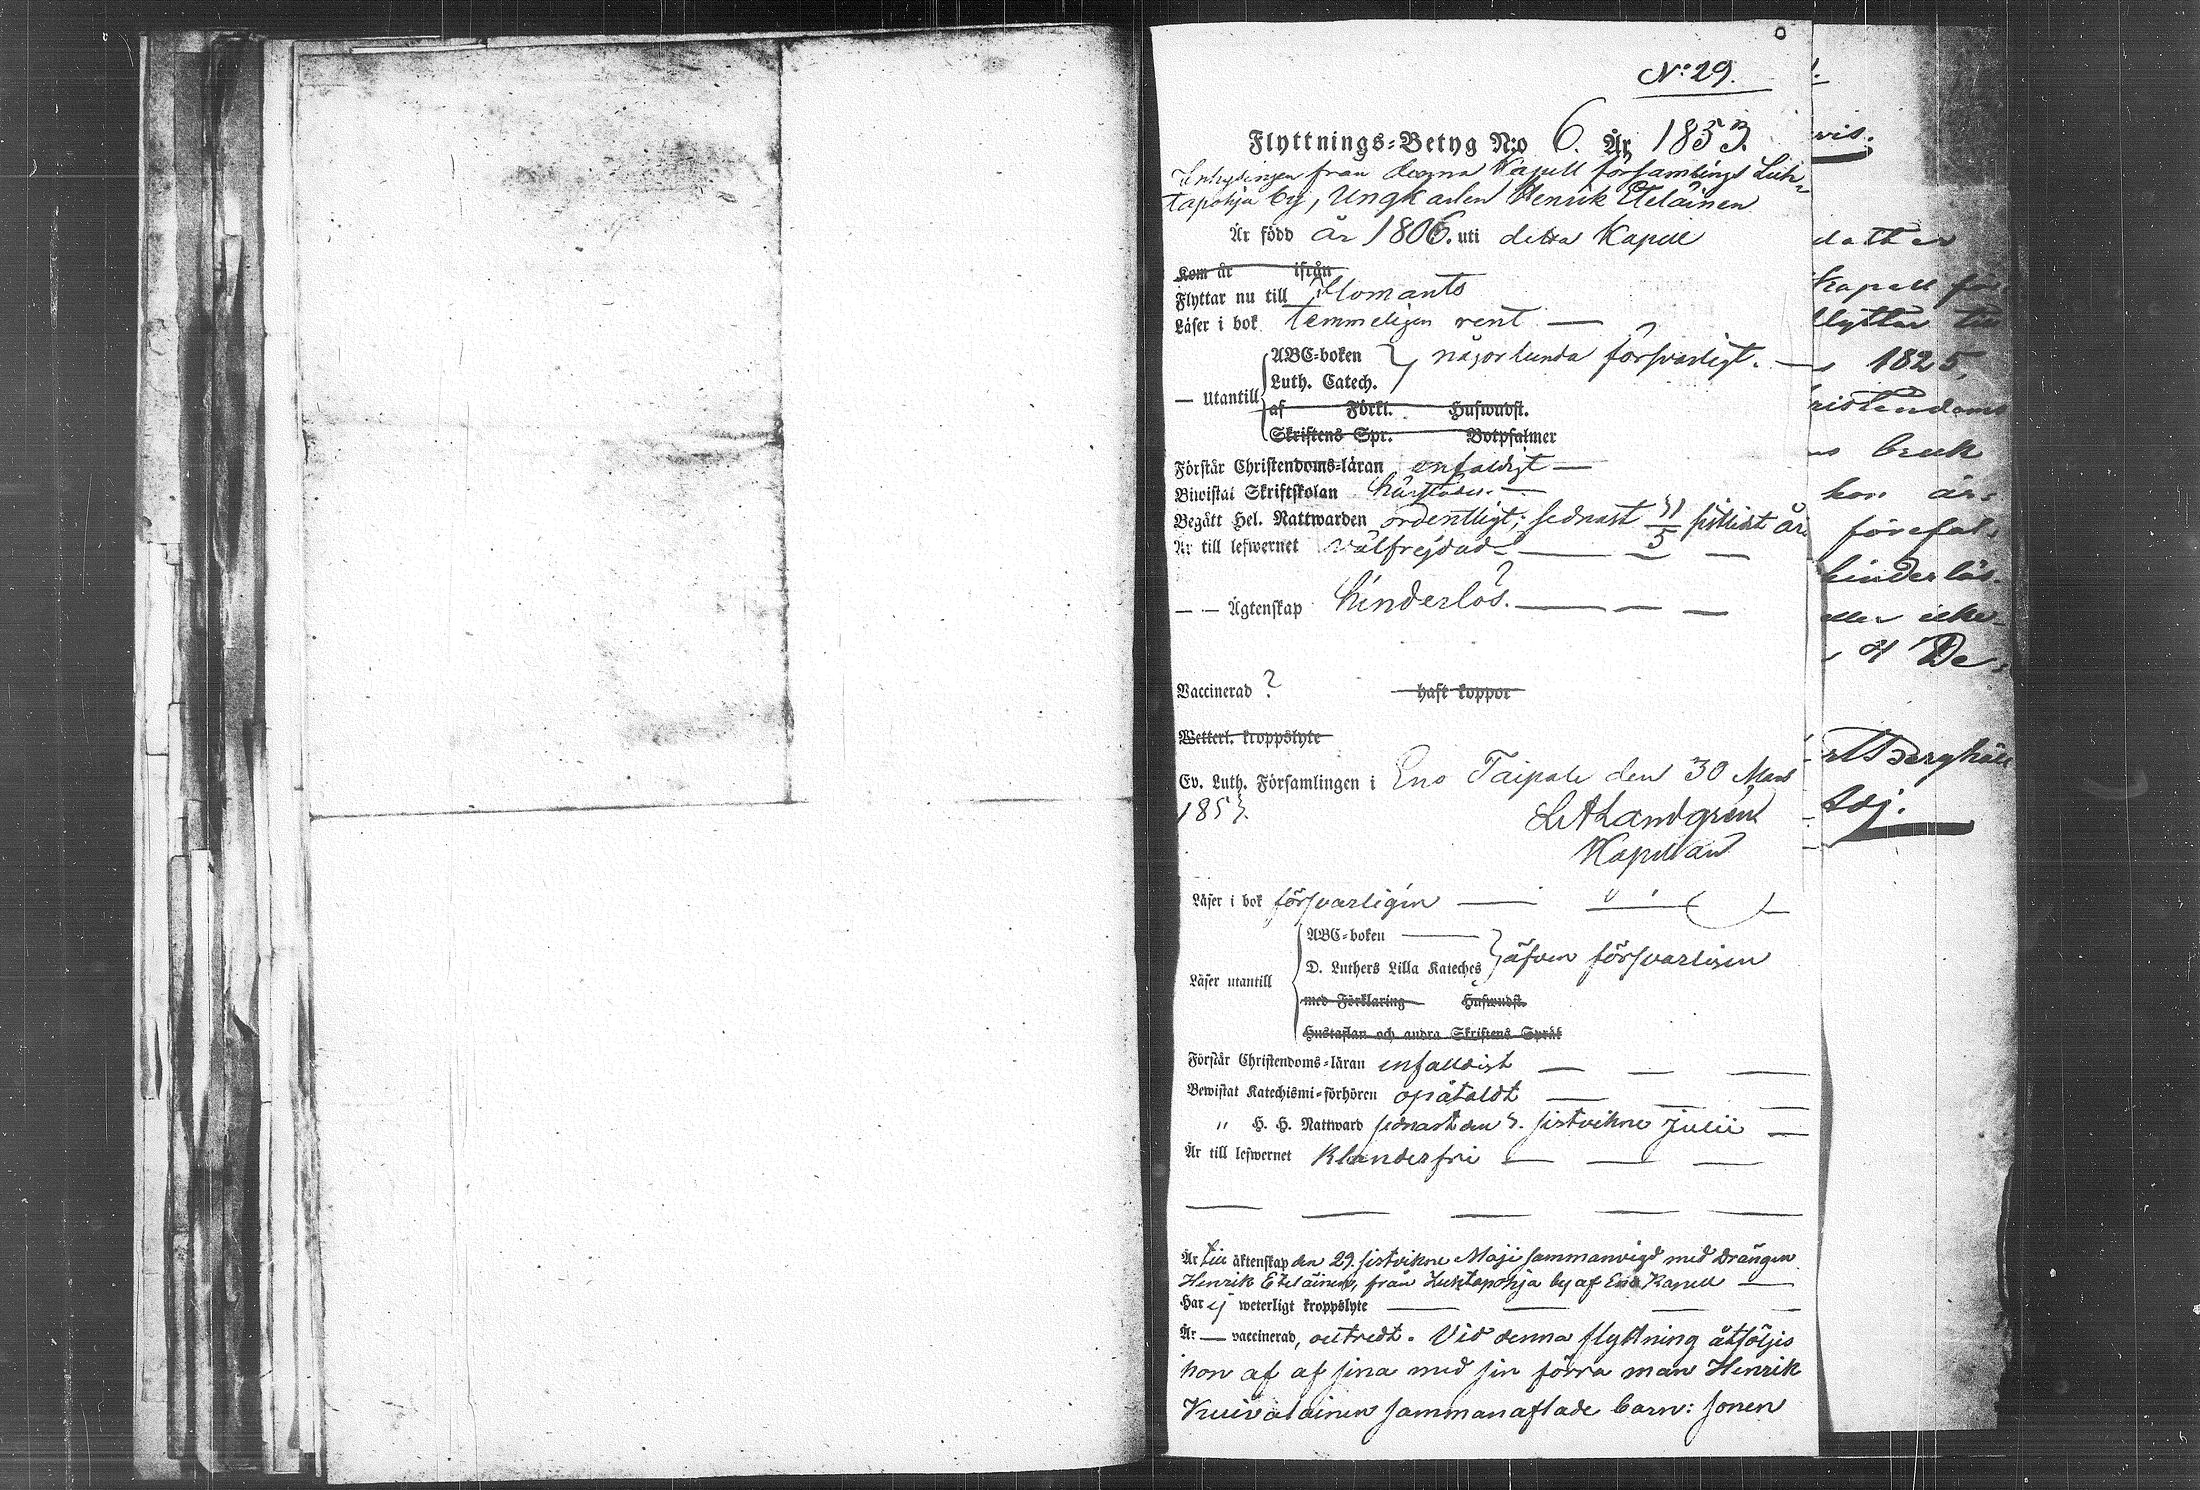 No: 29.
Flyttnings-Betyg N:o 6. År 1853.
Inhysingen från denna Kapell församlings Luh-
tapohja by, Ungkarlen Henrik Eteläinen
Är född år 1806. uti detta Kapell
Kom år ifrån
Flyttar nu till Ilomants
Läser i bok temmeligen rent —
— Utantill
ABC-boken } någorlunda försvarligt. —
Luth. Catech.
af Förkl. Huswudst.
Skriftens Spr. Botpsalmer
Förstår Christendoms-läran enfaldigt —
Biwistat Skriftskolan
Begått Hel. Nattwarden ordentligt; sednast 31/5 sistlidit år.
Är till lefwernet välfrejdad — — —
— — Ägtenskap hinderlös. — — —
Vaccinerad ? haft koppor
Wetterl. kroppslyte
Ev. Luth. Församlingen i Eno Taipale den 30 Mars
1853.
L A Landgrén
Kapellan
Läser i bok försvarligen —
Läser utantill
ABC-boken —
D. Luthers Lilla Kateches } äfven försvarligen
med Förklaring Huswudst.
Hustaflan och andra Skriftens Språk
Förstår Christendoms-läran enfaldigt — — —
Bewistat Katechismi-förhören opåtaldt — — —
" H. H. Nattward sednast den 3. sistvikne Julii —
Är till lefwernet Klanderfri — — —
— — — — —
Är till äktenskap den 29. sistvikne Maji sammanvigd med Drängen
Henrik Eteläinen, från Luhtapohja by af Eno Kapell —
Har ej weterligt kroppslyte — — — —
Är — vaccinerad, outredt. Vid denna flyttning åtföljes
hon af af sina med sin förra man Henrik
Kuivalainen sammanaflade barn: sonen
vis.
dotter
Kapell för-
flyttar till
1825,
ristendoms
bruk
hon är
förefal-
hinderlös
eller icke
De-
Berghäll
Adj.